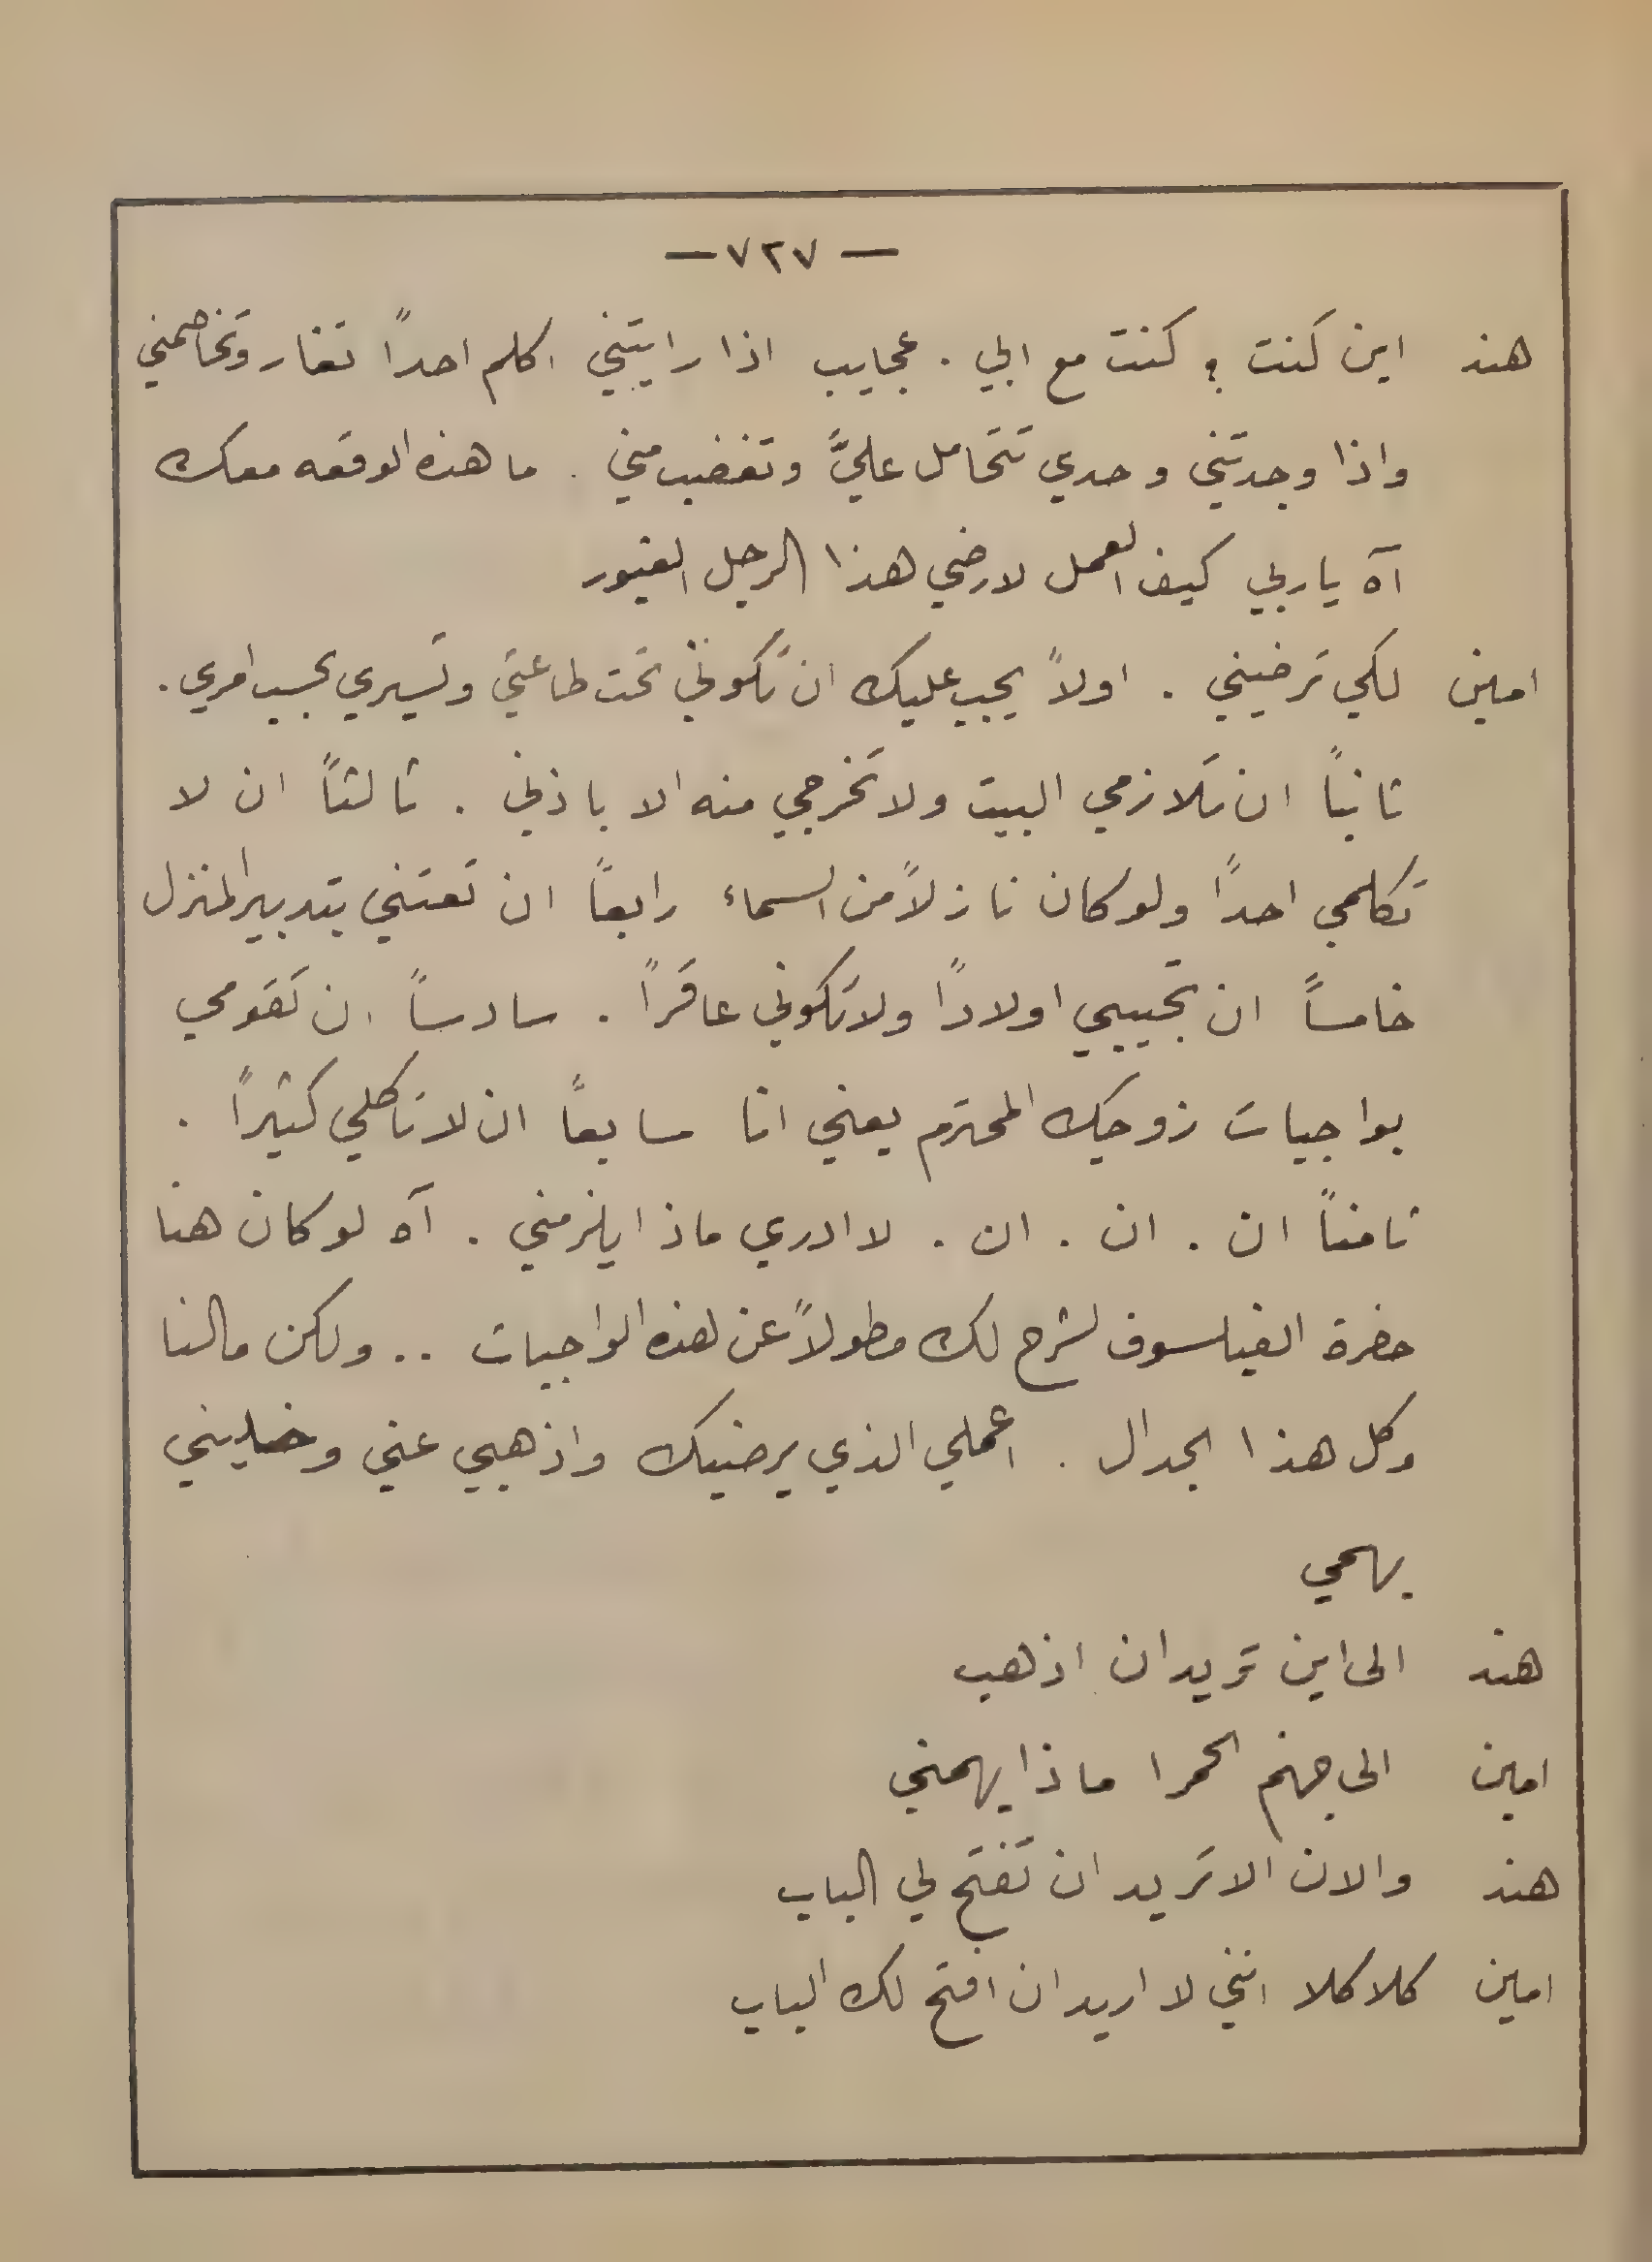 — ٧٢٧ —
هند اين كنت ؟ كنت مع ابي . عجايب اذا رايتني اكلم احداً تغار وتخاصمني
واذا وجدتني وحدي تتحامل عليَّ وتغضب مني . ما هذه الوقعه معك
آه ياربي كيف العمل لارضي هذا الرجل الغيور
امين لكي ترضيني . اولاً يجب عليك ان تكوني تحت طاعتي وتسيري بحسب امري .
ثانياً ان تلازمي البيت ولا تخرجي منه الا باذني . ثالثاً ان لا
تكلمي احداً ولو كان نازلاً من السماء رابعاً ان تعتني بتدبير المنزل
خامساً ان تجيبي اولاداً ولا تكوني عاقراً . سادساً ان تقومي
بواجبات زوجك المحترم يعني انا سابعاً ان لا تاكلي كثيراً .
ثامناً ان . ان . ان . لا ادري ماذا يلزمني . آه لو كان هنا
حضرة الفيلسوف لشرح لك مطولاً عن هذه الواجبات .. ولكن مالنا
وكل هذا الجدال . اعملي الذي يرضيك واذهبي عني وخليني
بهمي
هند الى اين تريد ان اذهب
امين الى جهنم الحمرا ماذا يهمني
هند والان الا تريد ان تفتح لي الباب
امين كلا كلا انني لا اريد ان افتح لك الباب